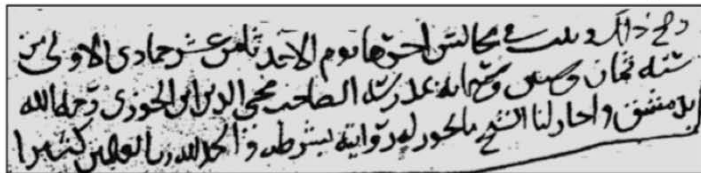 وصح ذلك في ثلث مجالس اخرها يوم الاحد ثامن عشر جمادى الاولى من
سنه ثمان وخمسين وستمايه بمدرسه الصاحب محيي الدين ابن الجوزى رحمه الله
بدمشق واجاز لنا الشيخ ما يجوز له روايته بشرطه والحمد لله رب العلمين كثيرا